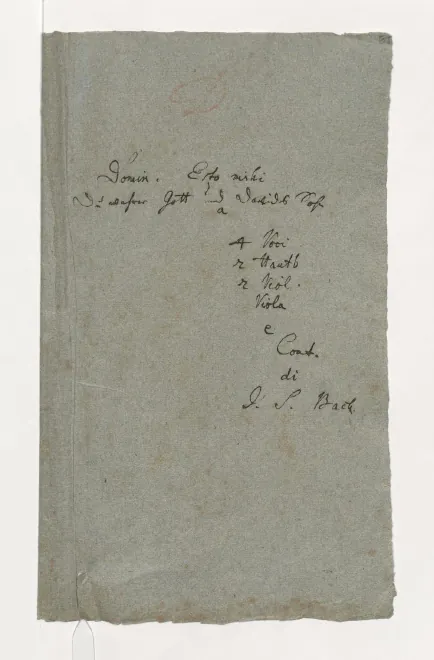 Domin. Esto mihi
Du wahrer Gott und Davids Sohn
a
4 Voci
2 Hautb
2 Viol.
Viola
e
Cont.
di
J. S. Bach